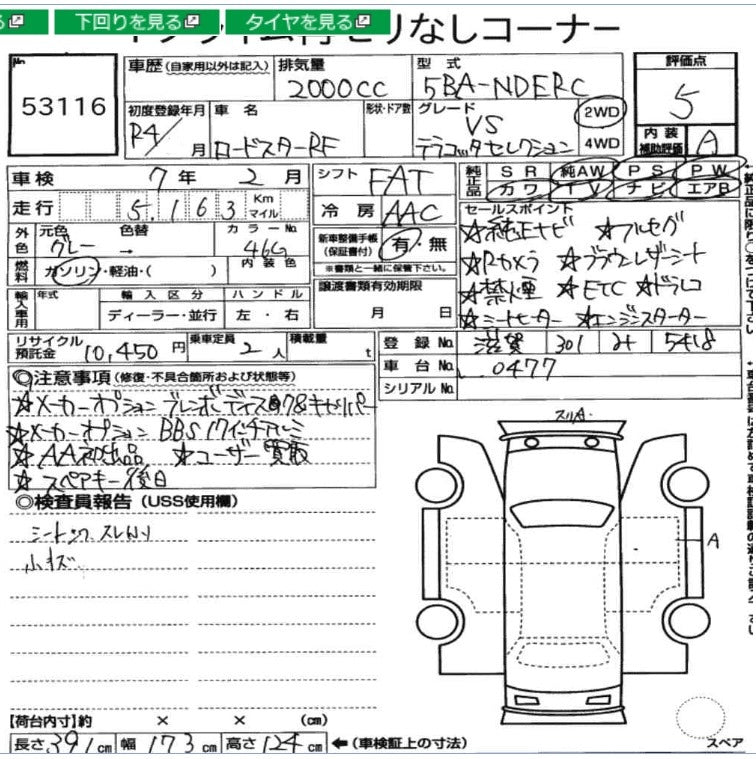 下回りを見る タイヤを見る
セリなしコーナー
No. 53116
車歴 (自家用以外は記入) 排気量 2000cc 型式 5BA-NDERC 評価点 5
初度登録年月 R4/ 月 車名 ロードスターRF 形状・ドア数 グレード VS テラコッタセレクション 2WD 4WD 内装補助評価 A
車検 7年 2月 シフト FAT 純正品 SR 純AW PS PW
カワ TV ナビ エアB
走行 5,163 Km マイル 冷房 AAC
外色 元色 グレー 色替 → カラーNo. 46G 内装色
新車整備手帳 (保証書付) 有・無 ※書類と一緒に保管下さい。
燃料 ガソリン・軽油・( )
セールスポイント
☆純正ナビ ☆フルセグ
☆Rカメラ ☆ブラウンレザーシート
☆禁煙 ☆ETC ☆ドラレコ
☆シートヒーター ☆エンジンスターター
輸入車用 年式 輸入区分 ディーラー・並行 ハンドル 左・右
譲渡書類有効期限 月 日
リサイクル預託金 10,450円 乗車定員 2人 積載量 t
登録No. 滋賀 301 み 5418
車台No. 0477
シリアルNo.
◎注意事項 (修復・不具合箇所および状態等)
☆メーカーオプション ブレンボディスク&キャリパー
☆メーカーオプション BBS 17インチアルミ
☆AA初出品 ☆ユーザー買取
☆スペアキー後日
◎検査員報告 (USS使用欄)
シート スレ
小キズ
スリA
A
スペア
【荷台内寸】約 × × (cm)
長さ 391cm 幅 173cm 高さ 124cm ←(車検証上の寸法)